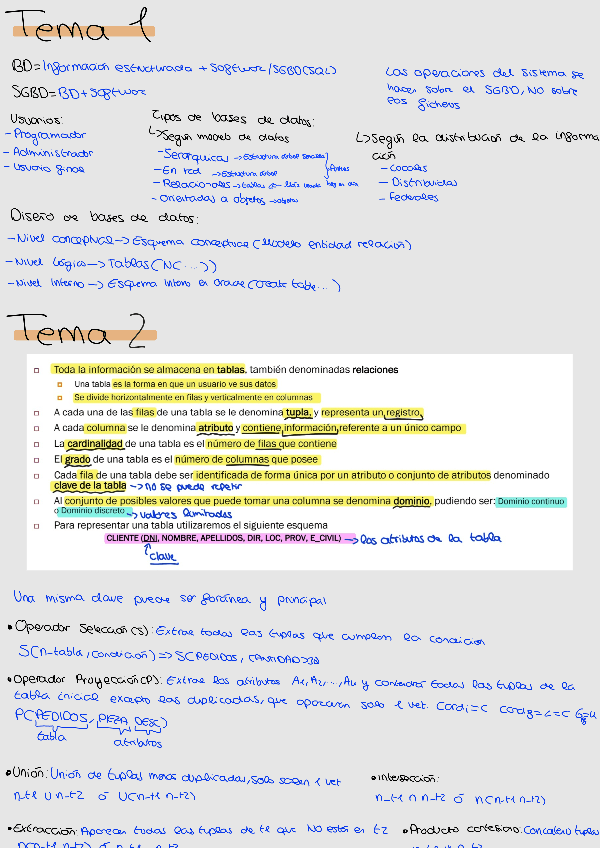 Tema 1
BD = Información estructurada + Software/SGBD(SQL)
SGBD = BD + Software
Las operaciones del sistema se
hacen sobre el SGBD, NO sobre
los ficheros
Usuarios:
- Programador
- Administrador
- Usuario final
Tipos de bases de datos:
↳ Según modelo de datos
- Jerárquicas → Estructura árbol
- En red → Estructura árbol
- Relacionales → tablas
- Orientadas a objetos → objetos
↳ Según la distribución de la informa
ción
- Locales
- Distribuidas
- Federales
Diseño de bases de datos:
- Nivel conceptual → Esquema conceptual (Modelo entidad relación)
- Nivel Lógico → Tablas (NC....))
- Nivel Interno → Esquema Interno en Oracle (Create table...)
Tema 2
Toda la información se almacena en tablas, también denominadas relaciones
Una tabla es la forma en que un usuario ve sus datos
Se divide horizontalmente en filas y verticalmente en columnas
A cada una de las filas de una tabla se le denomina tupla, y representa un registro.
A cada columna se le denomina atributo y contiene información referente a un único campo
La cardinalidad de una tabla es el número de filas que contiene
El grado de una tabla es el número de columnas que posee
Cada fila de una tabla debe ser identificada de forma única por un atributo o conjunto de atributos denominado
clave de la tabla → no se puede repetir
Al conjunto de posibles valores que puede tomar una columna se denomina dominio, pudiendo ser: Dominio continuo
o Dominio discreto → valores limitados
Para representar una tabla utilizaremos el siguiente esquema
CLIENTE (DNI, NOMBRE, APELLIDOS, DIR, LOC, PROV, E_CIVIL) → los atributos de la tabla
clave
Una misma clave puede ser foránea y principal
• Operador Selección(S): Extrae todas las tuplas que cumplen la condición
S(n-tabla, condición) => S(PEDIDOS, CANTIDAD>
• Operador Proyección(P): Extrae los atributos A1, A2, ..., An y contendrá todas las tuplas de la
tabla inicial excepto las duplicadas, que aparecen solo 1 vez.
P(PEDIDOS, PIEZA, DESC)
tabla
atributos
• Unión: Unión de tuplas menos duplicadas, solo salen 1 vez
n_t1 U n_t2 ó U(n_t1 n_t2)
• Intersección:
n_t1 ∩ n_t2 ó ∩(n_t1 n_t2)
• Extracción: Aparecen todas las tuplas de t1 que NO estén en t2
• Producto cartesiano: tuplas